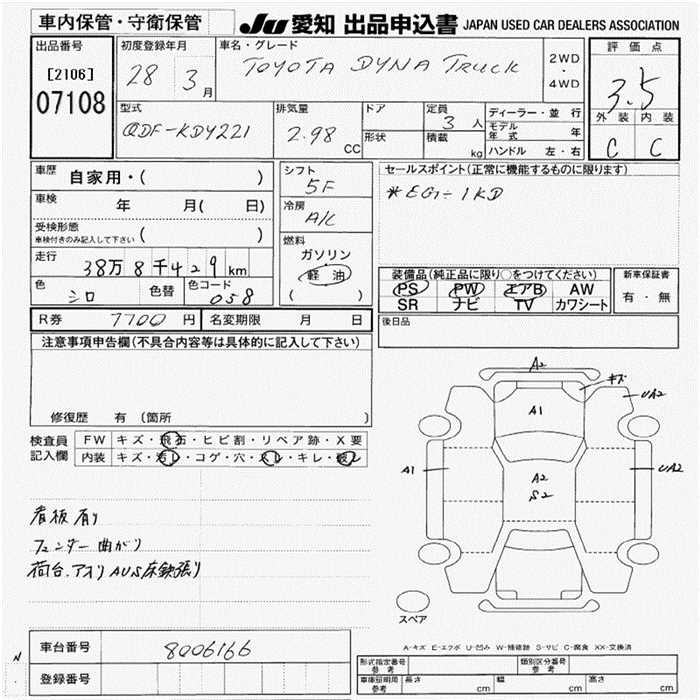 車内保管・守衛保管
JU 愛知 出品申込書 JAPAN USED CAR DEALERS ASSOCIATION
出品番号
[2106]
07108
初度登録年月
28 3月
車名・グレード
TOYOTA DYNA TRUCK
2WD
・
4WD
評価点
3.5
外装 内装
C C
型式
QDF-KDY221
排気量
2.98 CC
ドア
形状
定員
3 人
積載
kg
ディーラー・並行
モデル年式 年
ハンドル 左・右
車歴
自家用・( )
車検
年 月( 日)
受検形態
車検付きのみ記入して下さい ( )
走行
38万8千429km
色
シロ
色替
色コード
058
シフト
5F
冷房
A/C
燃料
ガソリン
軽油
( )
セールスポイント(正常に機能するものに限ります)
*EG÷1KD
装備品(純正品に限り○をつけてください)
PS PW エアB AW
SR ナビ TV カワシート
新車保証書
有・無
後日品
R券 7700 円
名変期限 月 日
注意事項申告欄(不具合内容等は具体的に記入して下さい)
修復歴 有 (箇所 )
検査員
記入欄
FW キズ・飛石・ヒビ割・リペア跡・X要
内装 キズ・汚レ・コゲ・穴・スレ・キレ・破レ
看板有り
フェンダー曲がり
荷台、アオリAUS床鉄張り
A2
キズ
UA2
A1
A1
A2
S2
UA2
スペア
A-キズ E-エクボ U-凹み W-補修跡 S-サビ C-腐食 XX-交換済
車台番号
8006166
登録番号
N
形式指定番号
参考
類別区分番号
参考
車庫証明用
参考
長さ cm
幅 cm
高さ cm